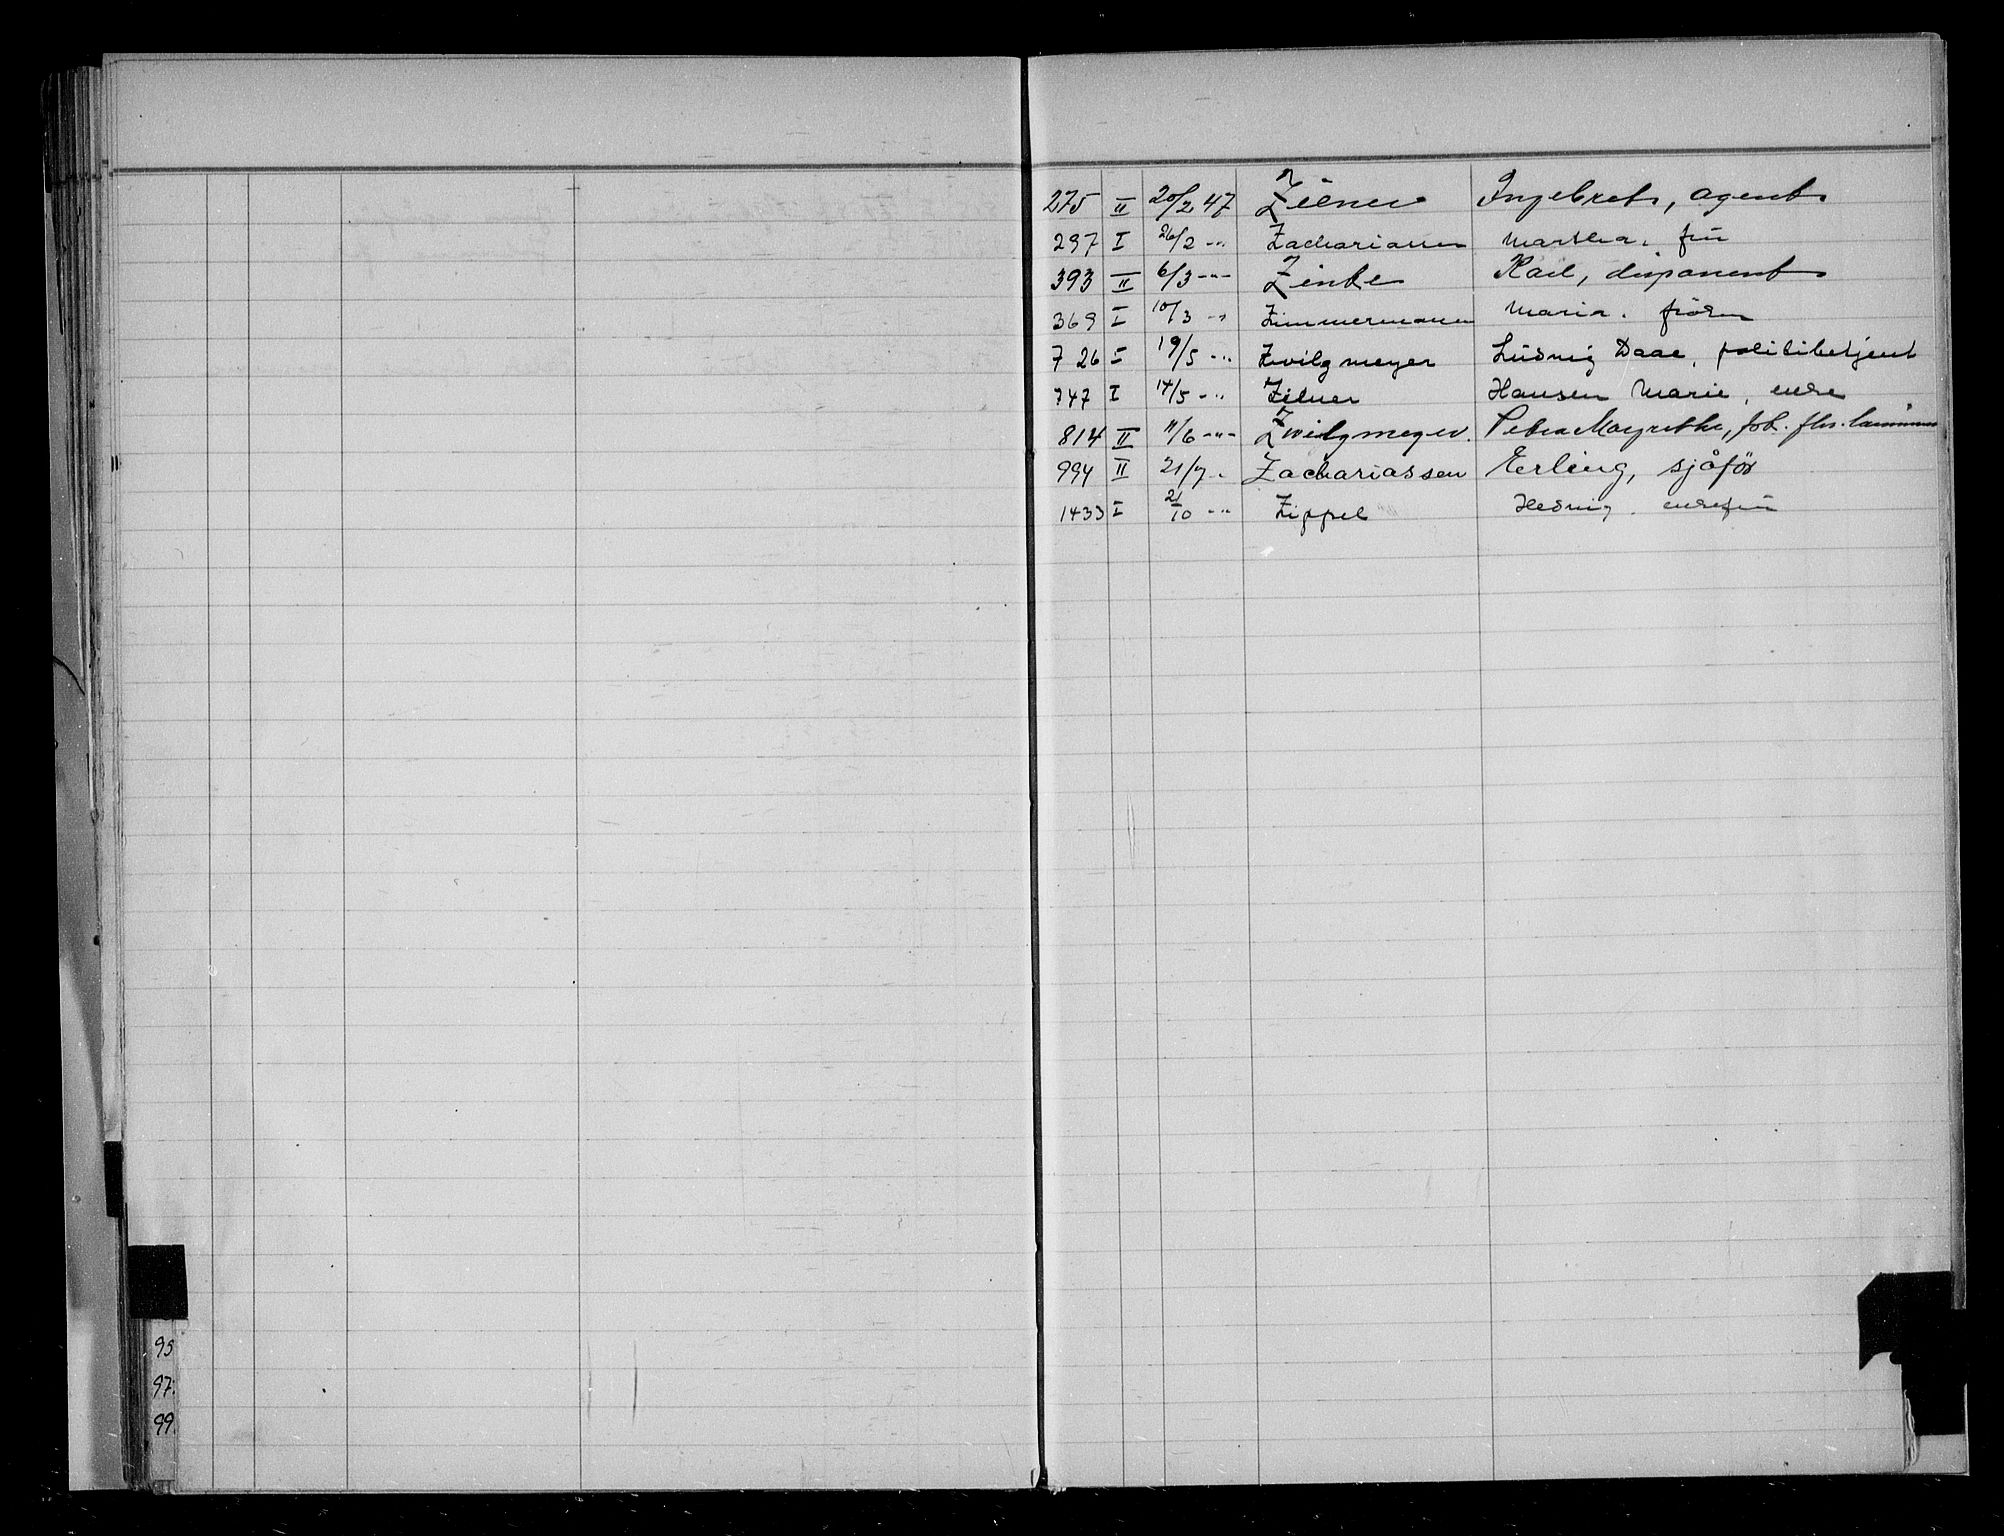 275 II 20/2 47 Zilner Ingebret, agent
297 I 26/2 -"- Zachariassen Marthea, frü
393 II 6/3 -"- Zinke Karl, disponent
369 I 10/3 -"- Zimmermann Maria, fröken
726 I 19/5 -"- Zwilgmeyer Ludvig Daae, politibetjent
747 I 14/5 -"- Zilner Hansen Marie, enke
814 II 11/6 -"- Zwilgmeyer. Petra Magrethe,
994 II 21/7 -"- Zachariassen Erling, sjåför
1433 I 21/10 -"- Zippel Hedvig, enkefrü
95
97.
99.